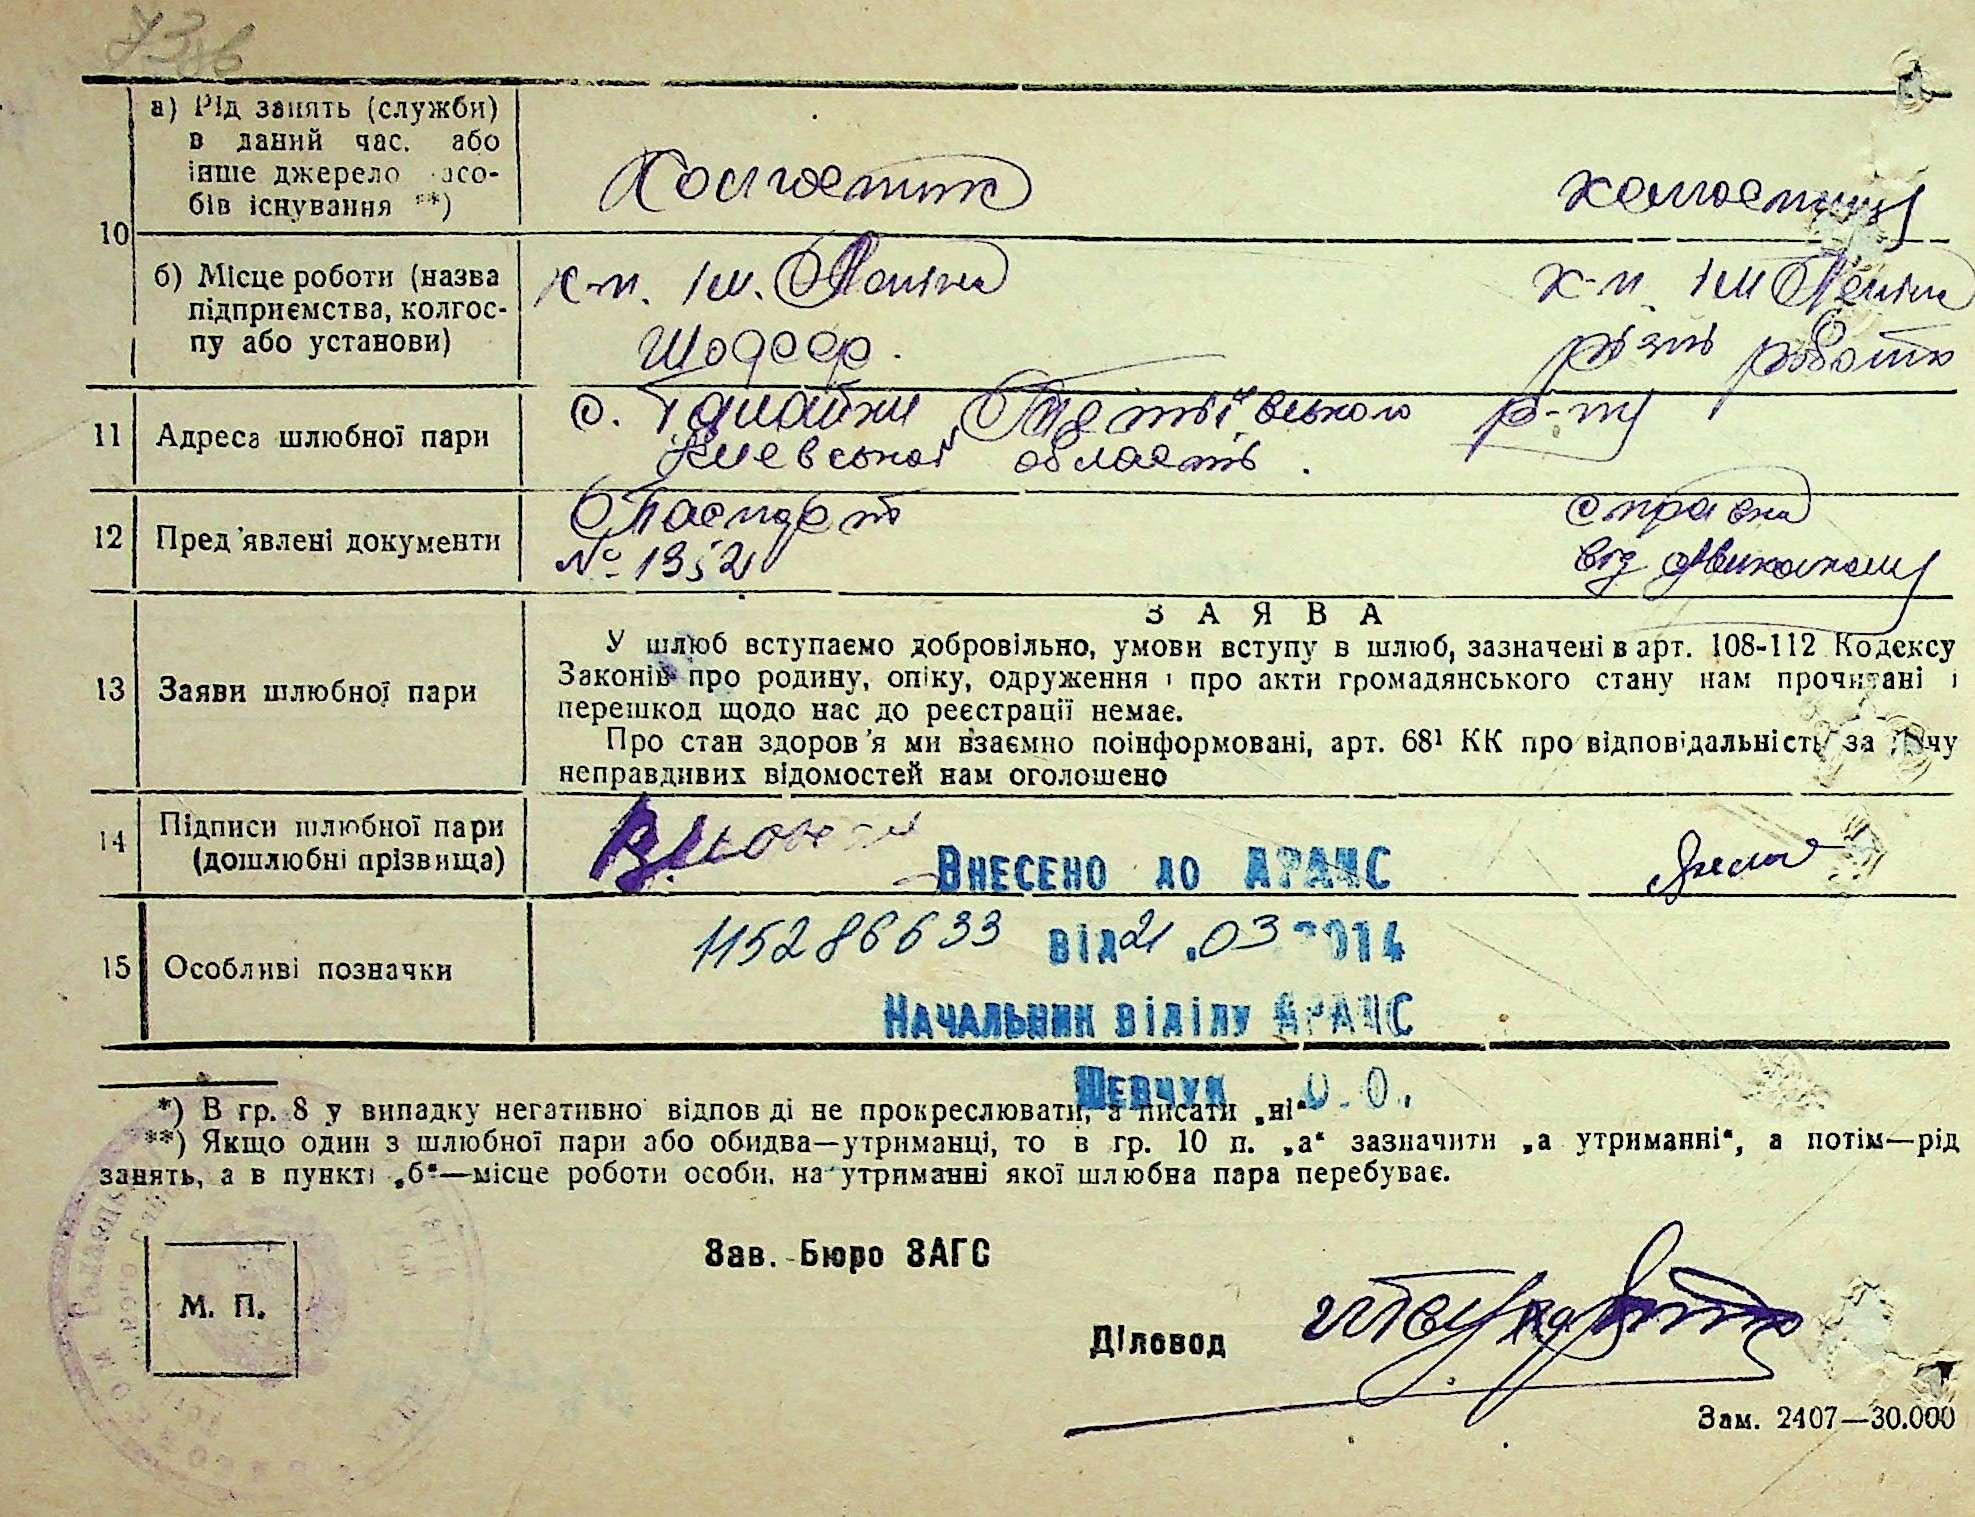 а) Рід занять (служби)
в даний час, або
інше джерело засо-
бів існування **)
Колгоспник
колгоспниця
10
б) Місце роботи (назва
підприємства, колгос-
пу або установи)
к-п. ім. Леніна
Шофер.
к-п. ім Леніна
різні роботи
11
Адреса шлюбної пари
с. Ківської області.
р-ну
12
Пред'явлені документи
Паспорт
№ 1352
справка
від
13
Заяви шлюбної пари
ЗАЯВА
У шлюб вступаємо добровільно, умови вступу в шлюб, зазначені в арт. 108-112 Кодексу
Законів про родину, опіку, одруження і про акти громадянського стану нам прочитані і
перешкод щодо нас до реєстрації немає.
Про стан здоров'я ми взаємно поінформовані, арт. 68¹ КК про відповідальність за дачу
неправдивих відомостей нам оголошено
14
Підписи шлюбної пари
(дошлюбні прізвища)
Внесено до АРАЦС
15
Особливі позначки
115286633 від 21.03 2014
Начальник відділу АРАЦС
Шевчук О.О.
*) В гр. 8 у випадку негативно відпов ді не прокреслювати, а писати „ні“
**) Якщо один з шлюбної пари або обидва—утриманці, то в гр. 10 п. „а“ зазначити „а утриманні“, а потім—рід
занять, а в пункті „б“—місце роботи особи, на утриманні якої шлюбна пара перебуває.
М. П.
Зав. Бюро ЗАГС
Діловод
Зам. 2407—30.000